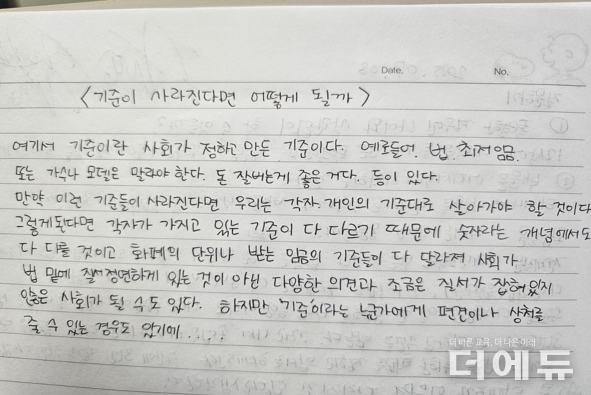 Date.
No.
<기준이 사라진다면 어떻게 될까>
여기서 기준이란 사회가 정하고 만든 기준이다. 예로들어, 법, 최저임금
또는 가수나 모델은 말라야 한다. 돈 잘버는게 좋은 거다. 등이 있다.
만약 이런 기준들이 사라진다면 우리는 각자 개인의 기준대로 살아가야 할 것이다
그렇게된다면 각자가 가지고 있는 기준이 다 다르기 때문에 숫자라는 개념에서도
다 다를 것이고 화폐의 단위나 받는 임금의 기준들이 다 달라져 사회가
법 밑에 질서정연하게 있는 것이 아닌 다양한 의견과 조금은 질서가 잡혀있지
않은 사회가 될 수도 있다. 하지만 '기준'이라는 누군가에게 편견이나 상처를
줄 수 있는 경우도 있기에....
더 나은 교육, 더 나은 미래
더에듀